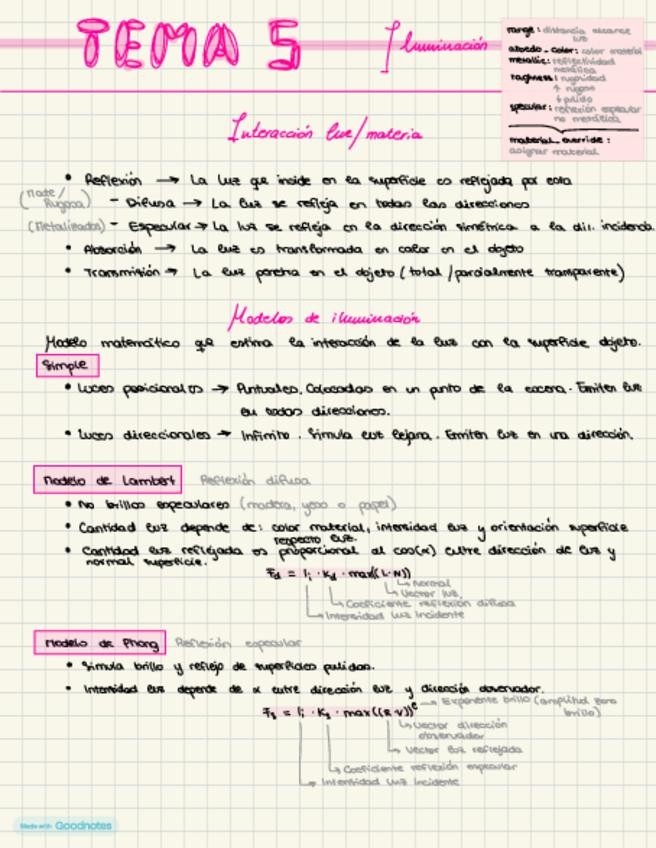 TEMA 5
Iluminación
range: distancia alcance
luz
albedo_color: color material
metallic: reflectividad
metálica
roughness: rugosidad
↑ rugoso
↓ pulido
specular: reflexión especular
no metálica
material_override:
asignar material
Interacción luz/materia
• Reflexión → La luz que incide en la superficie es reflejada por esta
(Mate/
Rugosa) - Difusa → La luz se refleja en todas las direcciones
(Metalizados) - Especular → La luz se refleja en la dirección simétrica a la dir. incidencia.
• Absorción → La luz es transformada en calor en el objeto
• Transmisión → La luz penetra en el objeto (total/parcialmente transparente)
Modelos de iluminación
Modelo matemático que estima la interacción de la luz con la superficie objeto.
Simple
• Luces posicionales → Puntuales. Colocadas en un punto de la escena. Emiten luz
en todas direcciones.
• Luces direccionales → Infinito. Simula luz lejana. Emiten luz en una dirección.
Modelo de Lambert Reflexión difusa
• No brillos especulares (madera, yeso o papel)
• Cantidad luz depende de: color material, intensidad luz y orientación superficie
respecto luz.
• Cantidad luz reflejada es proporcional al cos(α) entre dirección de luz y
normal superficie.
Fd = Ii · Kd · max((L·N))
Normal
Vector luz
Coeficiente reflexión difusa
Intensidad luz incidente
Modelo de Phong Reflexión especular
• Simula brillo y reflejo de superficies pulidas.
• Intensidad luz depende de α entre dirección luz y dirección observador.
Fs = Ii · Ks · max((R·V))ᵉ → Exponente brillo (amplitud zona
brillo)
Vector dirección
observador
Vector luz reflejada
Coeficiente reflexión especular
Intensidad luz incidente
Made with Goodnotes